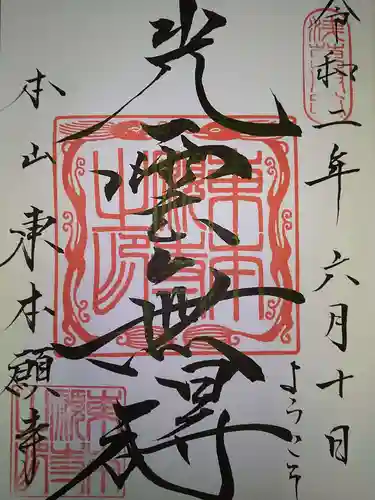 令和二年六月十日
ようこそ
光雲無碍
本山東本願寺